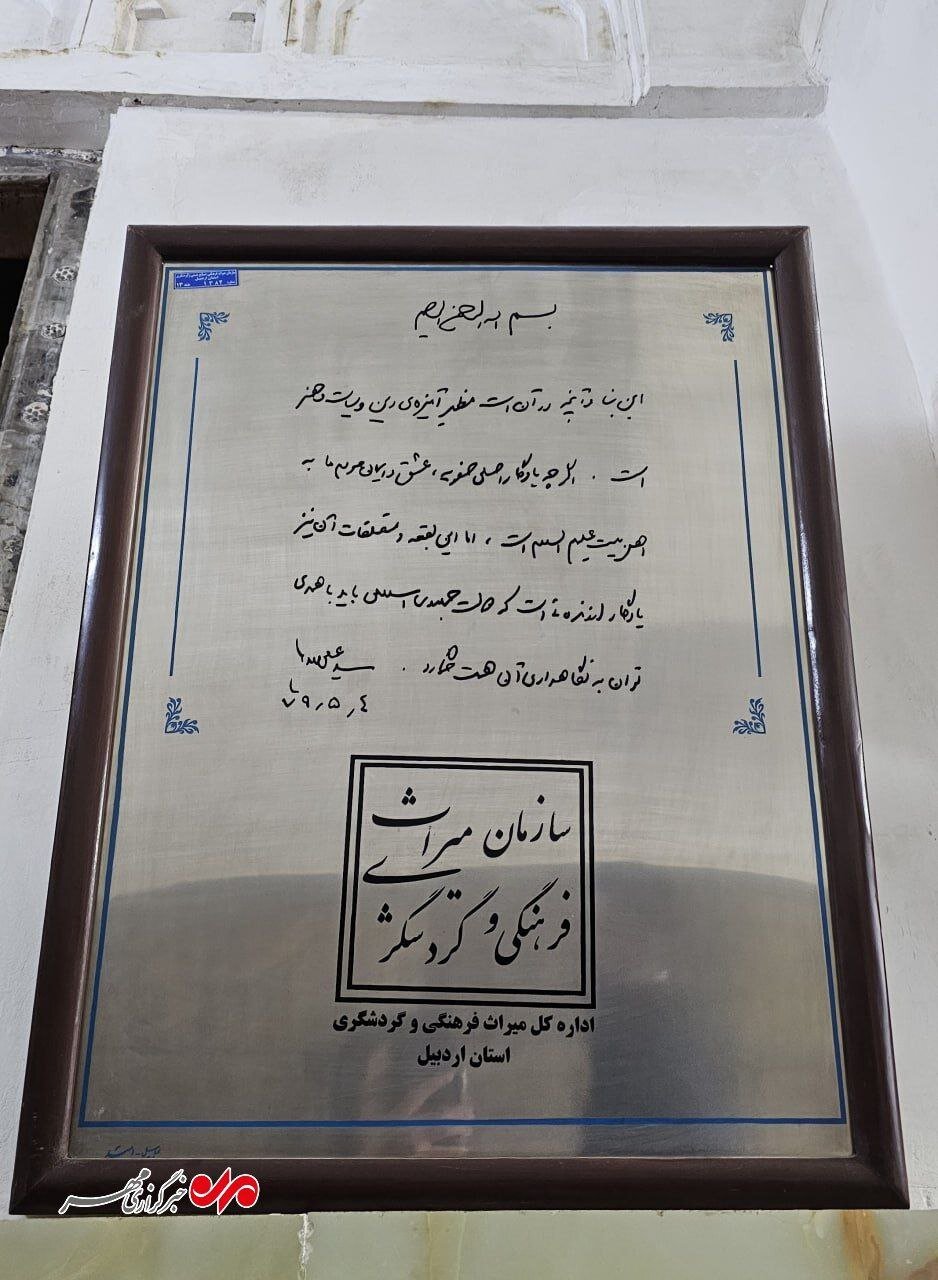 سازمان میراث فرهنگی، صنایع دستی و گردشگری
استان اردبیل
۱۳۸۴
بسم الله الرحمن الرحیم
این بنا و آنچه در آن است مظهر آمیزه‌ی دین و سیاست و هنر
است . اگر چه یادگار اصلی صفویه ، عشق و ایمان مردم ما به
اهل بیت علیهم السلام است ، اما این بقعه و متعلقات آن نیز
یادگار ارزنده ئی است که دولت جمهوری اسلامی باید با همه‌ی
توان به نگاهداری آن همت گمارد .
سید علی خامنه‌ای
۷۹٫۵٫۴
سازمان میراث
فرهنگی و گردشگری
اداره کل میراث فرهنگی و گردشگری
استان اردبیل
خبرگزاری مهر